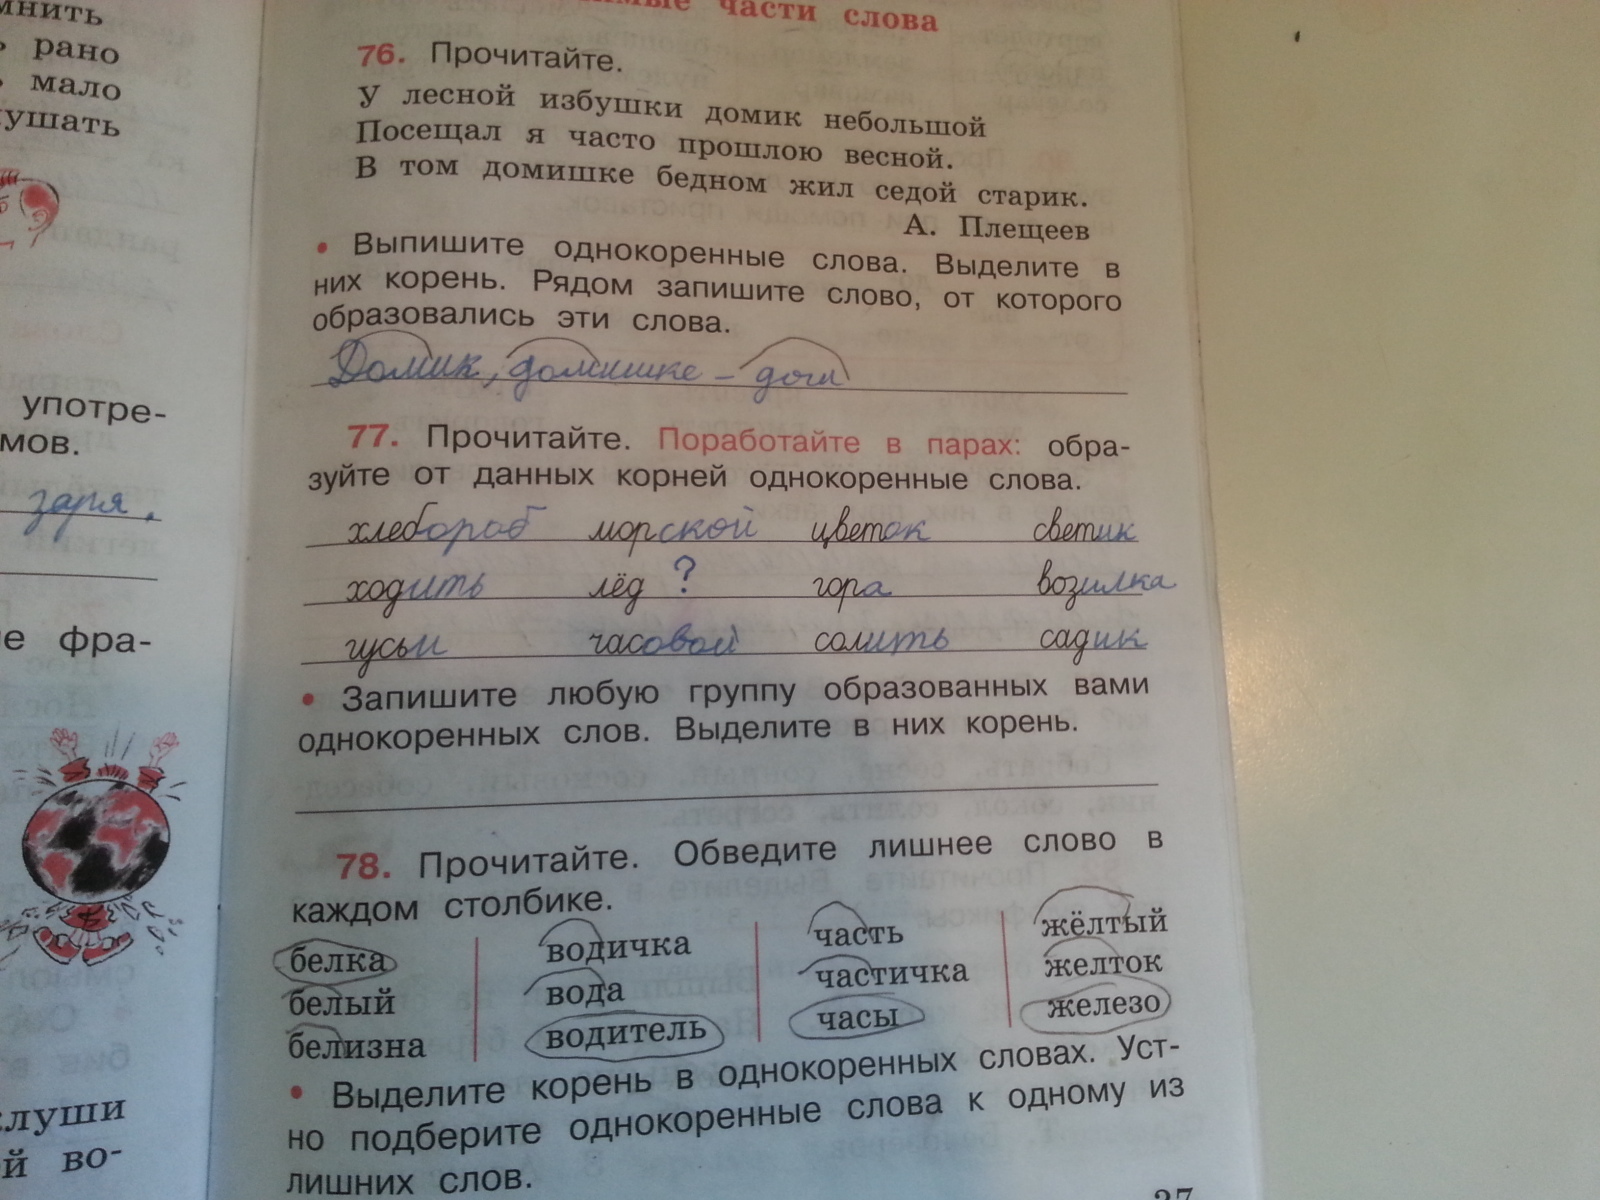 мнить
рано
мало
ушать
употре-
мов.
заря.
е фра-
луши
й во-
части слова
76. Прочитайте.
У лесной избушки домик небольшой
Посещал я часто прошлою весной.
В том домишке бедном жил седой старик.
А. Плещеев
• Выпишите однокоренные слова. Выделите в
них корень. Рядом запишите слово, от которого
образовались эти слова.
Домик, домишке – дом
77. Прочитайте. Поработайте в парах: обра-
зуйте от данных корней однокоренные слова.
хлебороб морской цветок светик
ходить лёд ? гора возилка
гусьи часовой солить садик
• Запишите любую группу образованных вами
однокоренных слов. Выделите в них корень.
78. Прочитайте. Обведите лишнее слово в
каждом столбике.
белка водичка часть жёлтый
белый вода частичка желток
белизна водитель часы железо
• Выделите корень в однокоренных словах. Уст-
но подберите однокоренные слова к одному из
лишних слов.
37